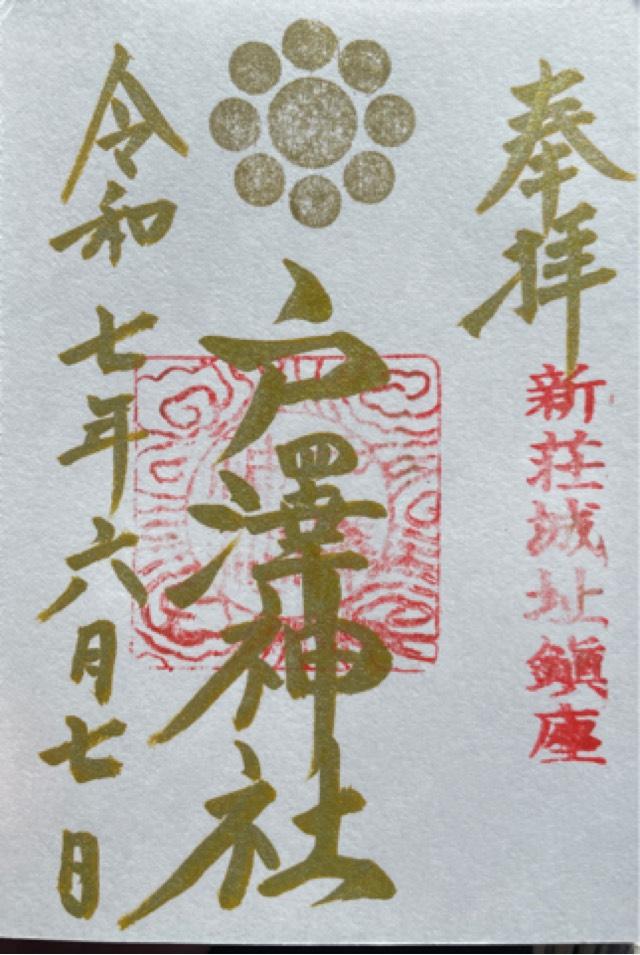 奉拝
新荘城址鎮座
戸澤神社
令和七年六月七日